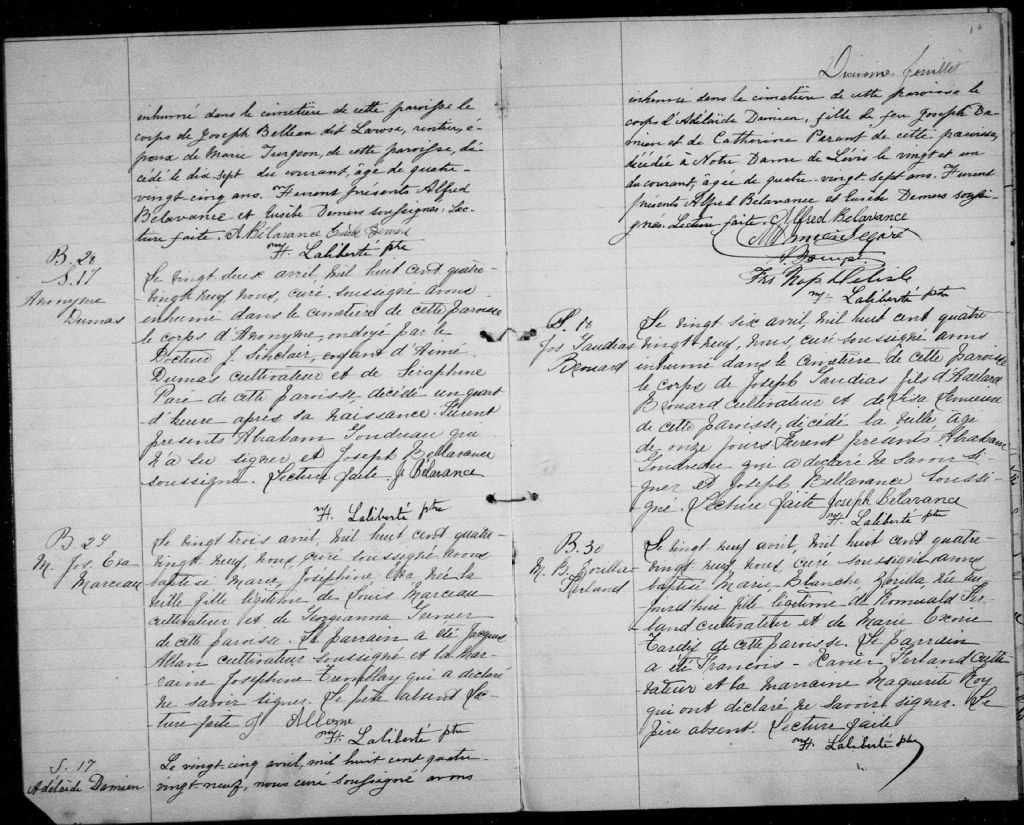 inhumé dans le cimetière de cette paroisse le
corps de Joseph Belleau dit Larose, rentier, é-
poux de Marie Turgeon, de cette paroisse, dé-
cédé le dix-sept du courant, âgé de quatre-
vingt cinq ans. Furent présents Alfred
Bélavance et Demers soussignés. Lec-
ture faite. A Bélavance Demers
H. Laliberté ptre
B. 28
S. 17
Anonyme
Dumas
Le vingt deux avril, mil huit cent quatre-
vingt neuf, nous, curé soussigné avons
inhumé dans le cimetière de cette paroisse
le corps d'Anonyme, ondoyé par le
Docteur J. Sinclair, enfant d'Aimé
Dumas cultivateur et de Séraphine
Paré de cette paroisse, décédé un quart
d'heure après sa naissance. Furent
présents Abraham Gondreau qui
n'a su signer et Joseph Bellavance
soussigné. Lecture faite J. Bélavance
H. Laliberté ptre
B. 29
M. Jos. Exa
Marceau
Le vingt trois avril, mil huit cent quatre-
vingt neuf, nous, curé soussigné avons
baptisé Marie, Joséphine, Exa, née la
veille fille légitime de Louis Marceau
cultivateur et de Georgianna
de cette paroisse. Le parrain a été Jacques
Allan cultivateur soussigné et la mar-
raine Joséphine Tremblay qui a déclaré
ne savoir signer. Le père absent Lec-
ture faite J
H. Laliberté ptre
S. 17
Adélaïde Damien
Le vingt-cinq avril, mil huit cent quatre-
vingt-neuf, nous curé soussigné avons
10
Dixième feuillet
inhumé dans le cimetière de cette paroisse le
corps d'Adélaïde Damien, fille de feu Joseph Da-
mien et de Catherine Parant de cette paroisse,
décédée à Notre Dame de Lévis le vingt et un
du courant, âgée de quatre-vingt sept ans. Furent
présents Alfred Bélavance et Demers soussi-
gnés. Lecture faite. Alfred Bélavance
H. Laliberté ptre
S. 18
Jos Gaudias
Brouard
Le vingt six avril, mil huit cent quatre-
vingt neuf, nous, curé soussigné avons
inhumé dans le cimetière de cette paroisse
le corps de Joseph Gaudias fils d'Adélard
Brouard cultivateur et de
de cette paroisse, décédé la veille, âgé
de onze jours Furent présents Abraham
Gondreau qui a déclaré ne savoir si-
gner et Joseph Bellavance soussi-
gné. Lecture faite Joseph Bélavance
H. Laliberté ptre
B. 30
M. B. Zorilla
Ferland
Le vingt neuf avril, mil huit cent quatre-
vingt neuf, nous, curé soussigné avons
baptisé Marie Blanche Zorilla née du
jourd'hui fille légitime de Romuald Fer-
land cultivateur et de Marie
Tardif de cette paroisse. Le parrain
a été Francois-Xavier Ferland culti-
vateur et la marraine Maguerite Roy
qui ont déclaré ne savoir signer. Le
père absent. Lecture faite
H. Laliberté ptre